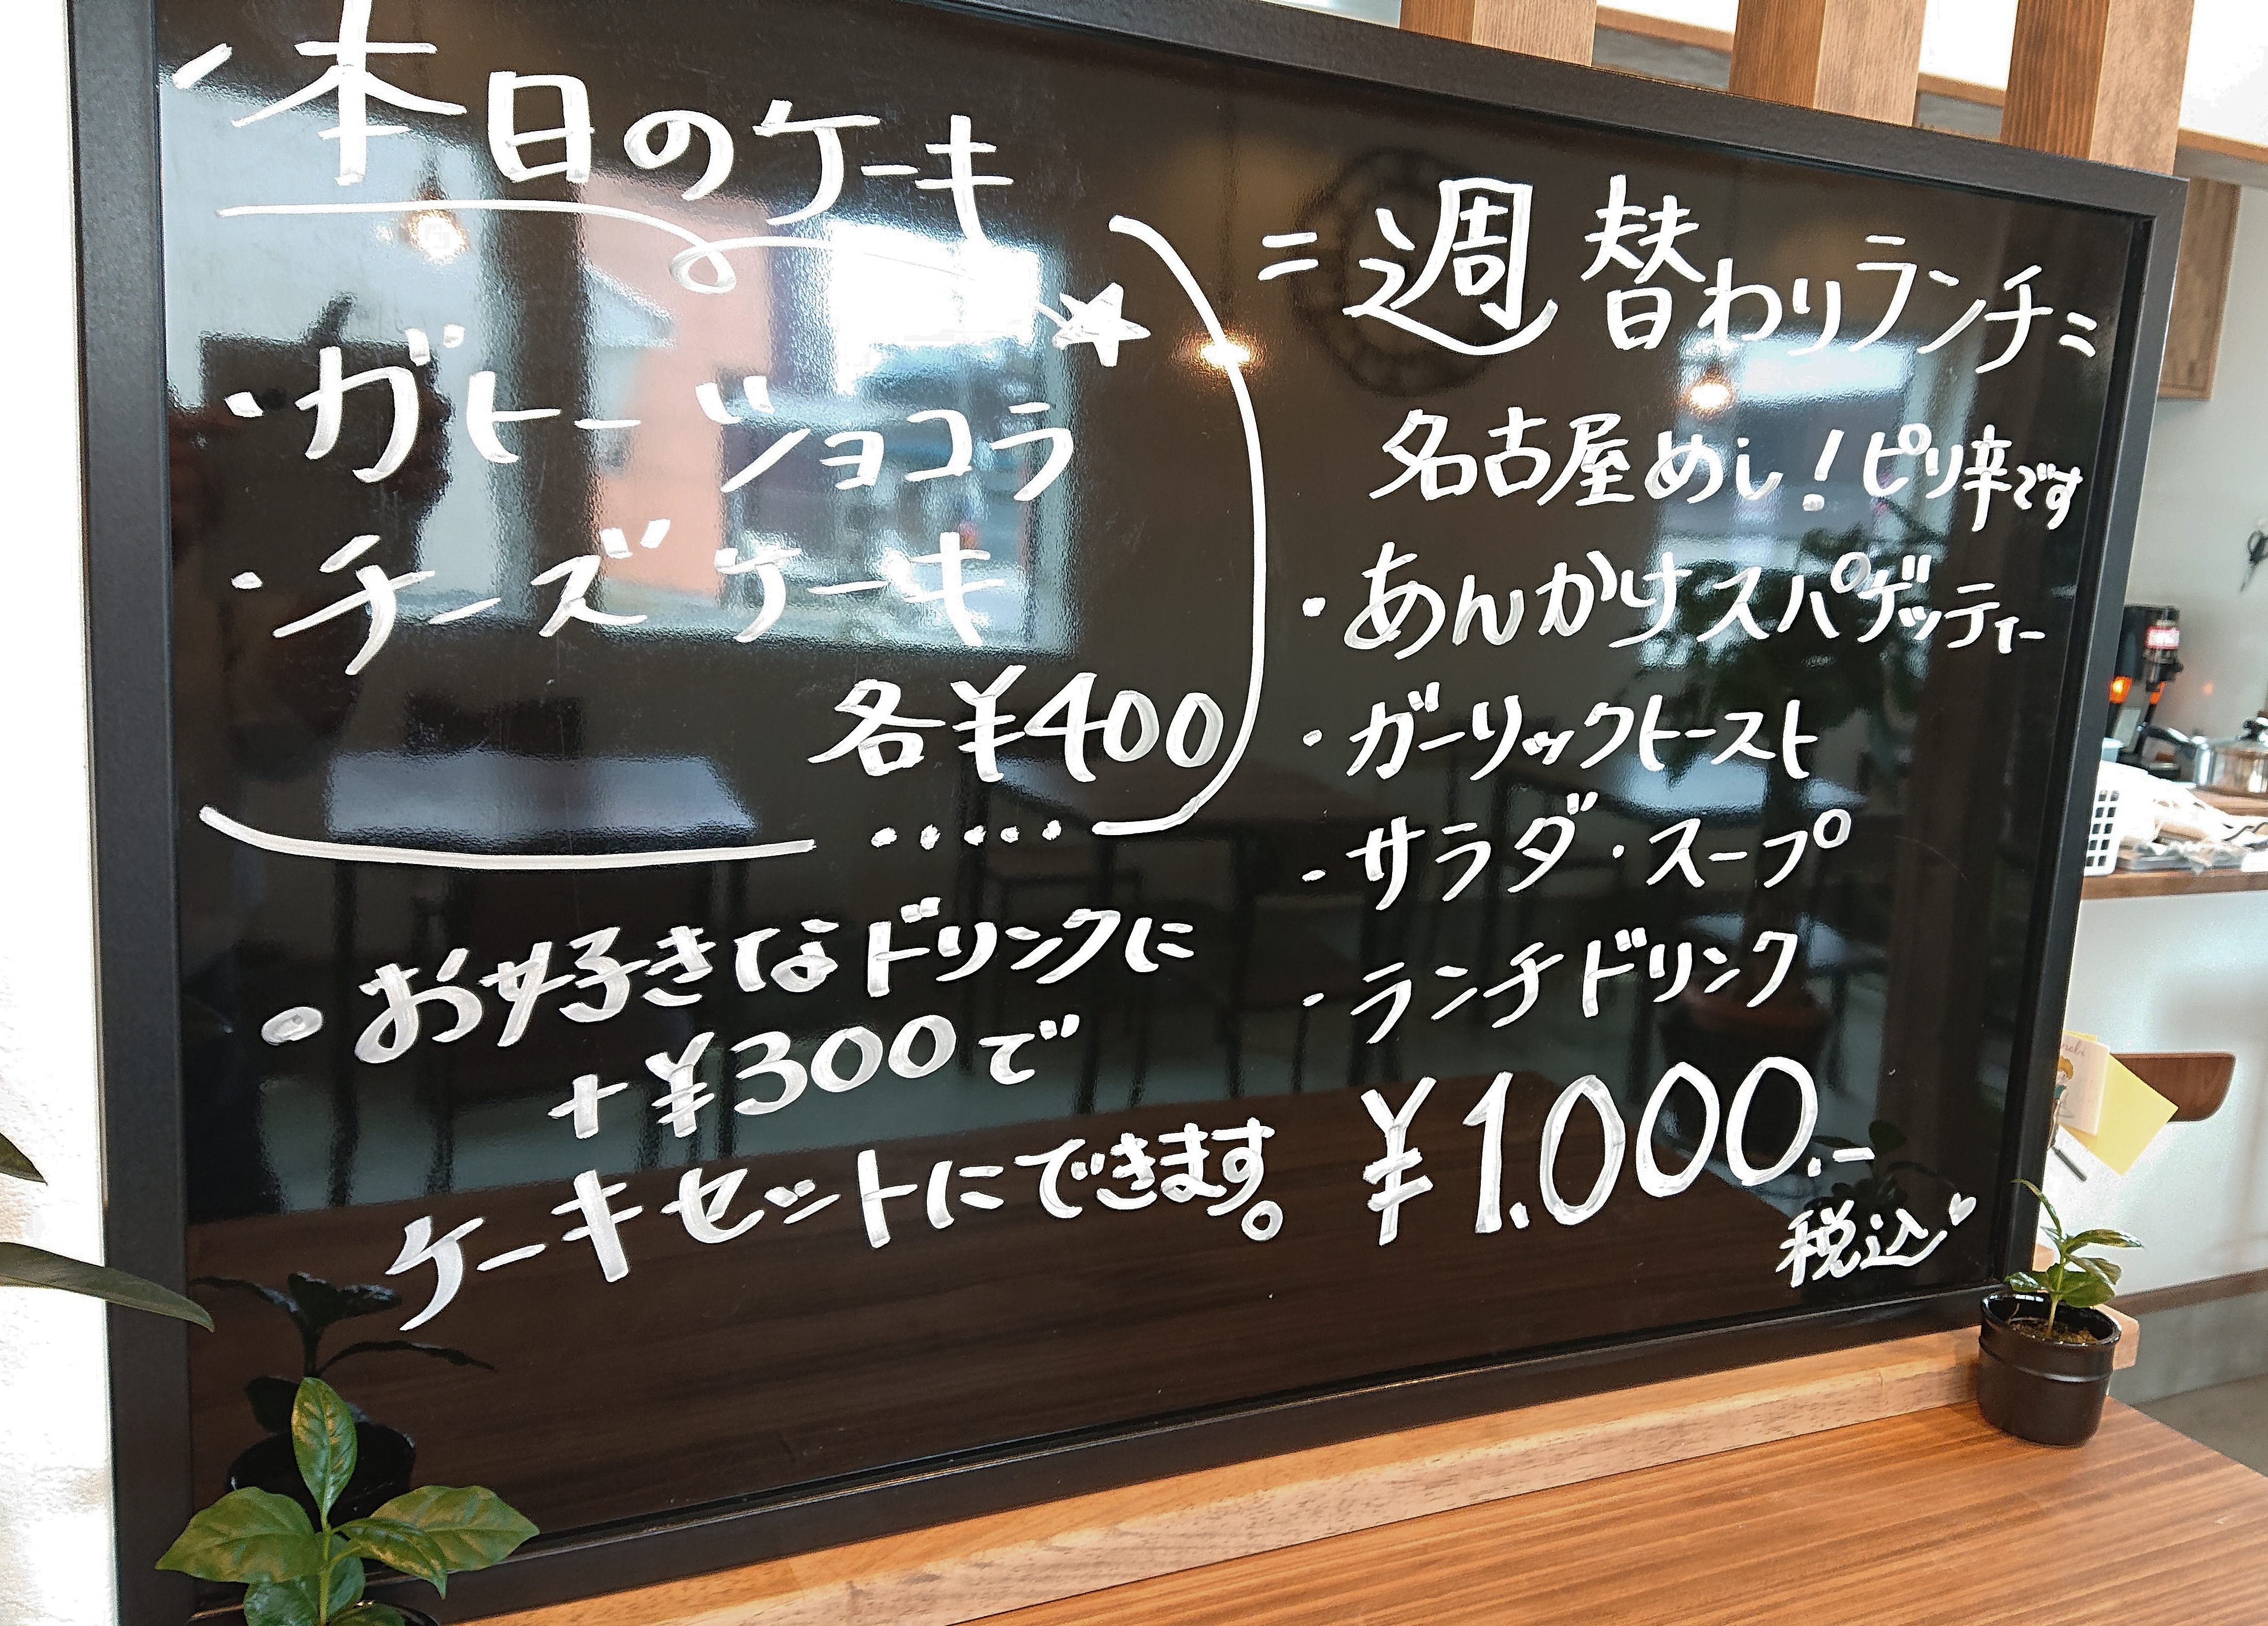 本日のケーキ
・ガトーショコラ
・チーズケーキ
各¥400
・お好きなドリンクに
+¥300で
ケーキセットにできます。
=週替わりランチ=
名古屋めし!ピリ辛です
・あんかけスパゲッティー
・ガーリックトースト
・サラダ・スープ
・ランチドリンク
¥1.000.-
税込